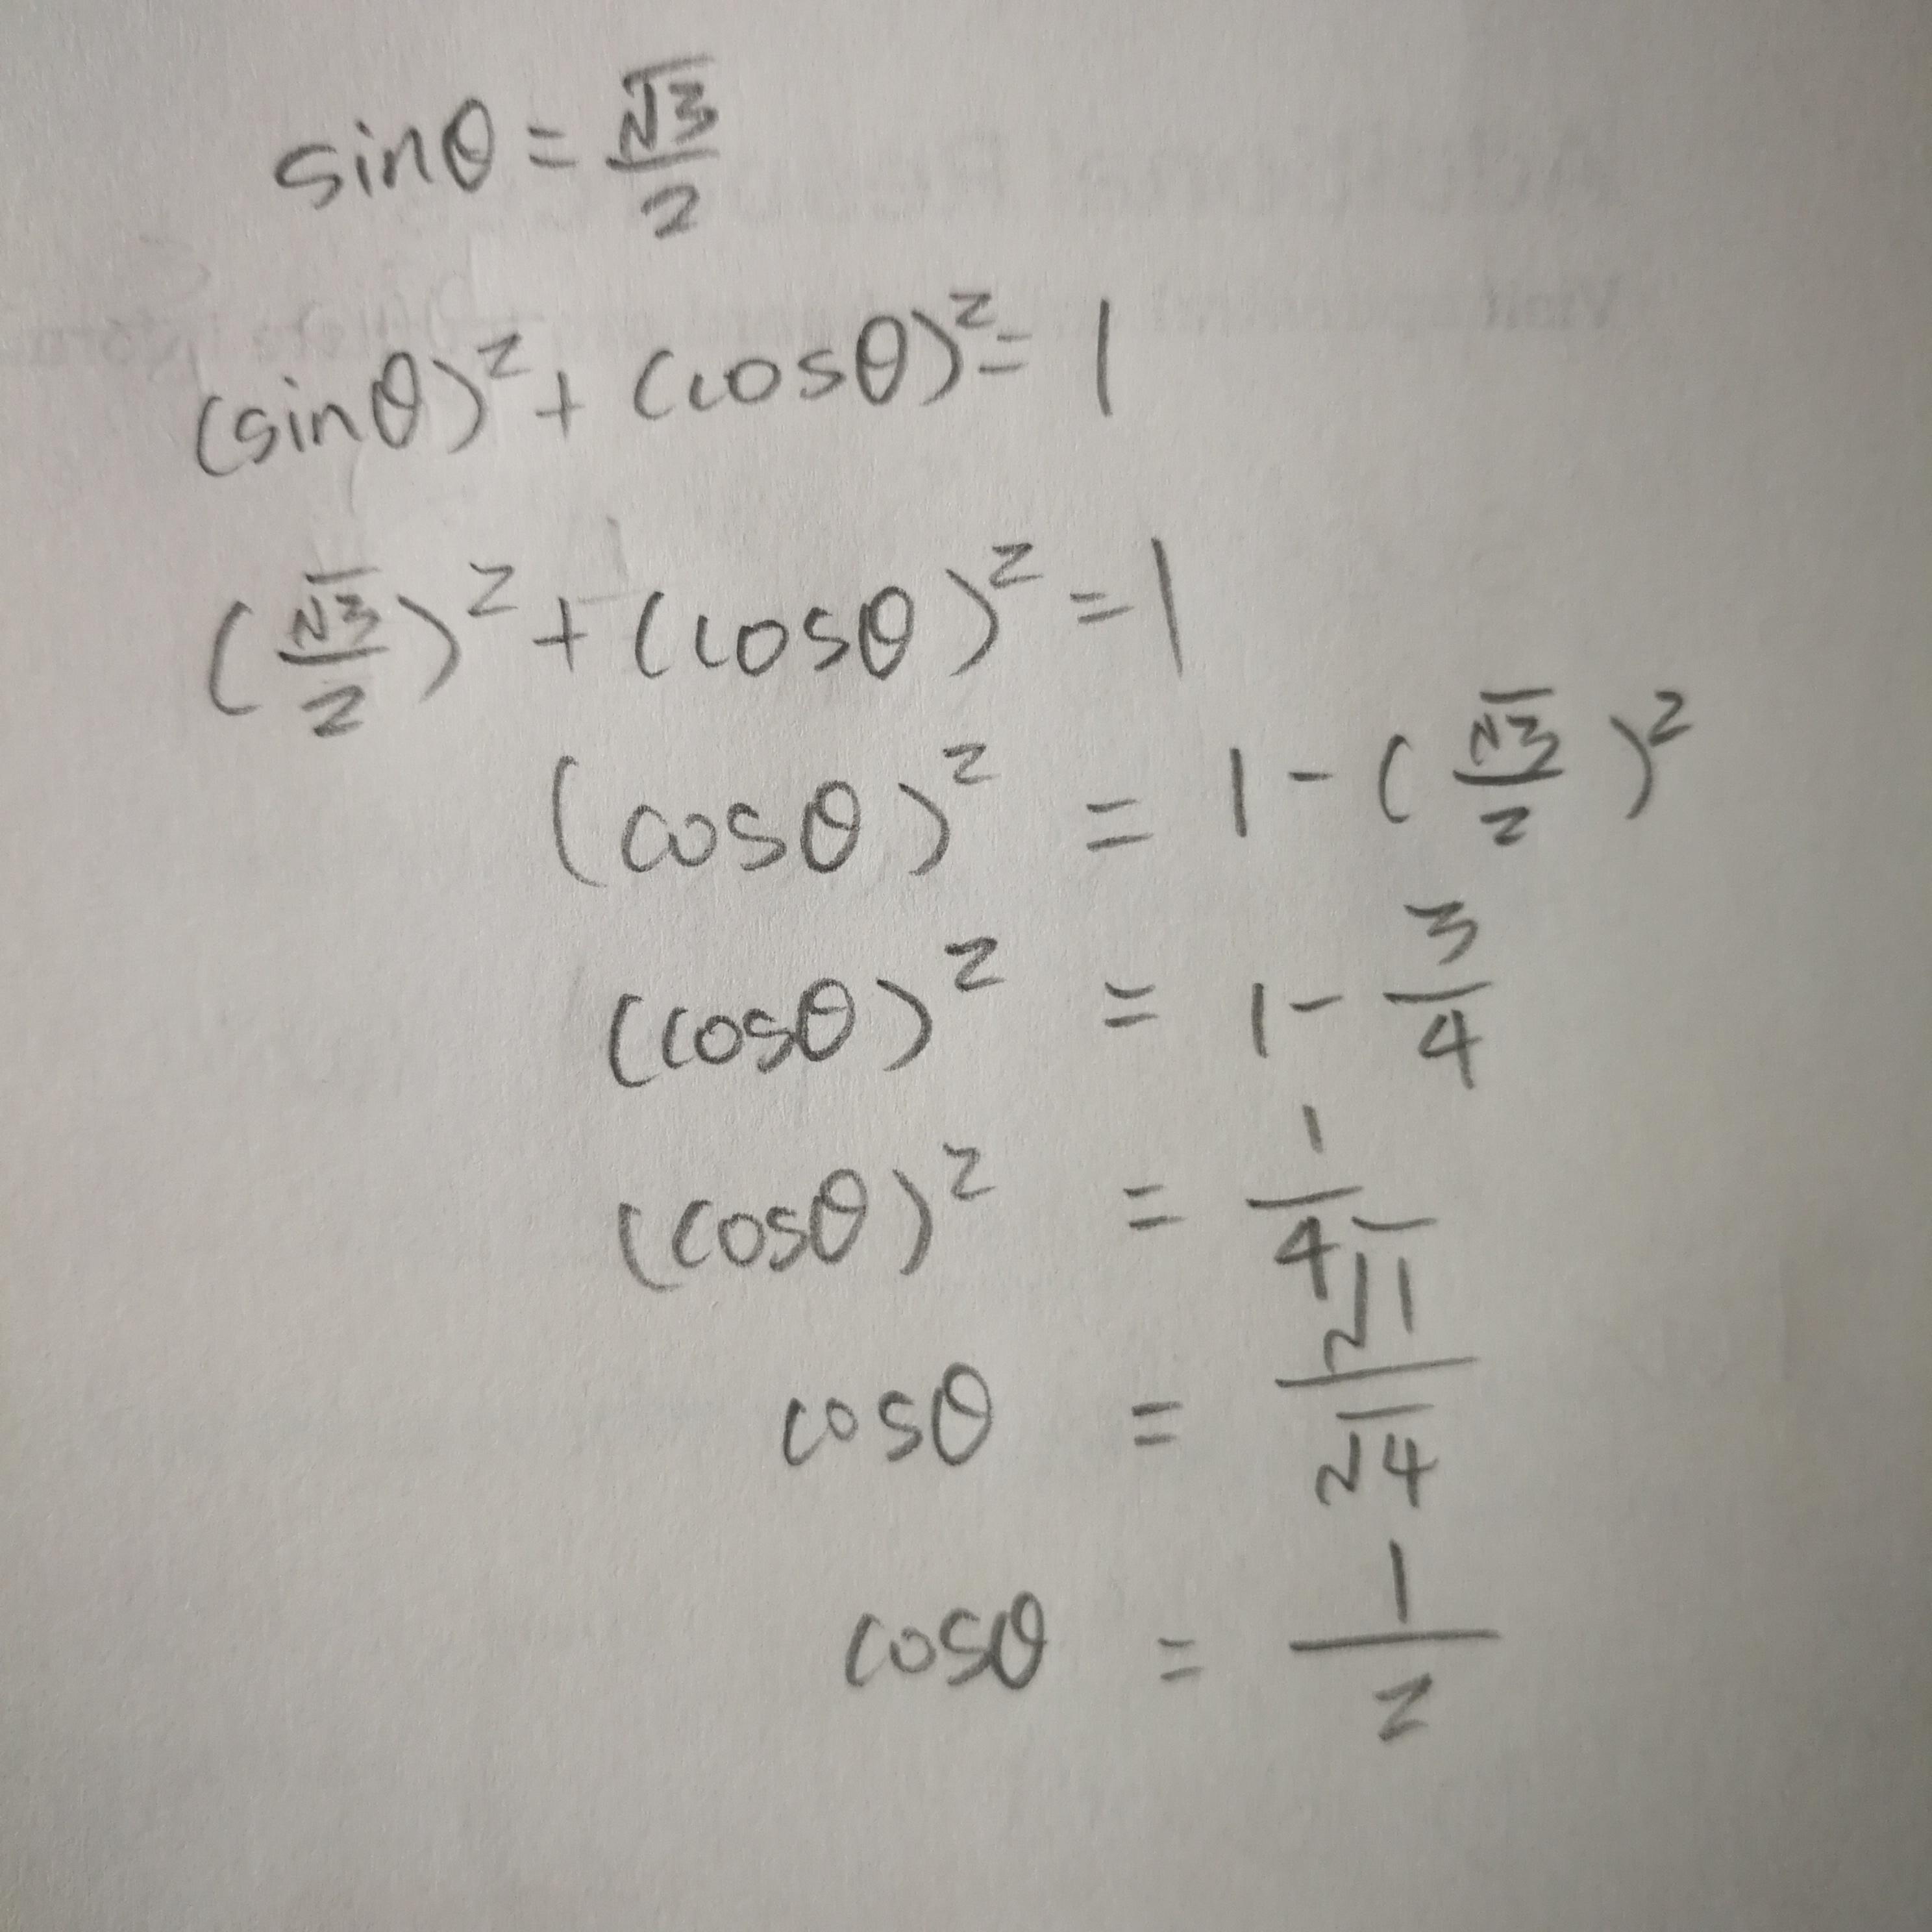 sinθ = √3/2
(sinθ)² + (cosθ)² = 1
(√3/2)² + (cosθ)² = 1
(cosθ)² = 1 - (√3/2)²
(cosθ)² = 1 - 3/4
(cosθ)² = 1/4
cosθ = √1/√4
cosθ = 1/2